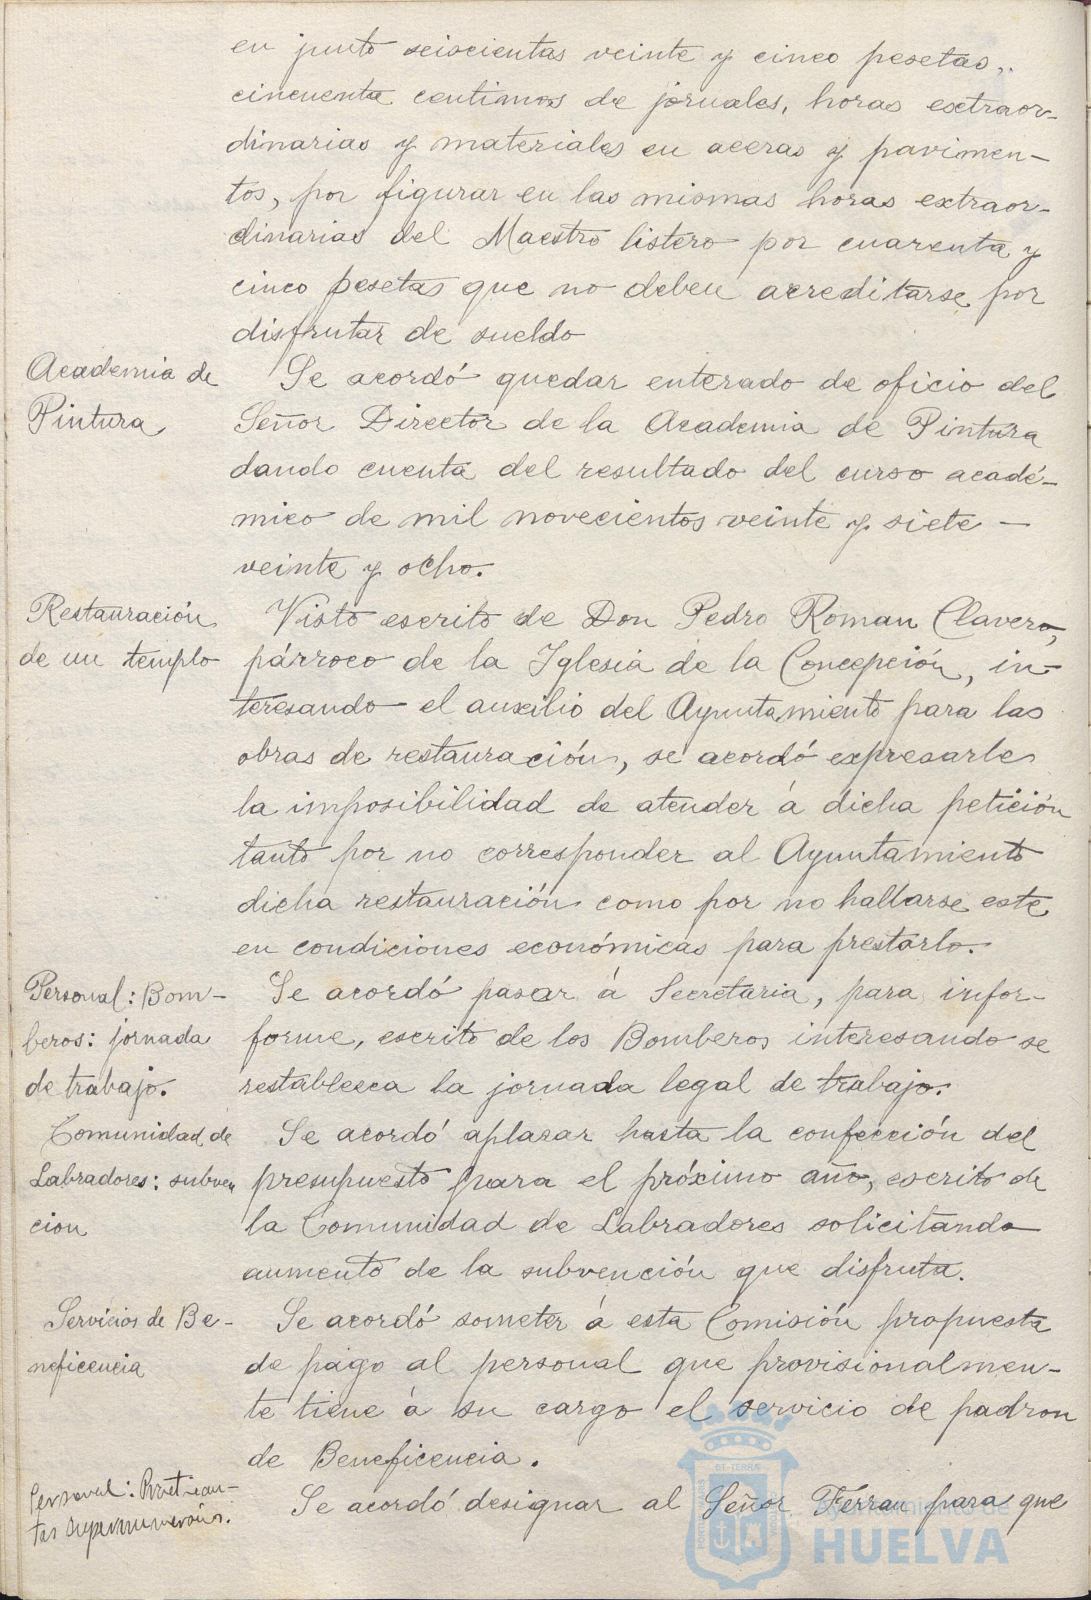 en junto seiscientas veinte y cinco pesetas,
cincuenta centimos de jornales, horas extraor-
dinarias y materiales en aceras y pavimen-
tos, por figurar en las mismas horas extraor-
dinarias del Maestro listero por cuarenta y
cinco pesetas que no deben acreditarse por
disfrutar de sueldo
Academia de
Pintura
Se acordó quedar enterado de oficio del
Señor Director de la Academia de Pintura
dando cuenta del resultado del curso acadé-
mico de mil novecientos veinte y siete —
veinte y ocho.
Restauración
de un templo
Visto escrito de Don Pedro Roman Clavero,
párroco de la Iglesia de la Concepción, in-
teresando el auxilio del Ayuntamiento para las
obras de restauración, se acordó expresarle
la imposibilidad de atender á dicha petición
tanto por no corresponder al Ayuntamiento
dicha restauración como por no hallarse este
en condiciones económicas para prestarlo.
Personal: Bom-
beros: jornada
de trabajo.
Se acordó pasar á Secretaria, para infor-
forme, escrito de los Bomberos interesando se
restablezca la jornada legal de trabajo.
Comunidad de
Labradores: subven
cion
Se acordó aplazar hasta la confección del
presupuesto para el próximo año, escrito de
la Comunidad de Labradores solicitando
aumento de la subvención que disfruta.
Servicios de Be-
neficencia
Se acordó someter á esta Comisión propuesta
de pago al personal que provisionalmen-
te tiene á su cargo el servicio de padron
de Beneficencia.
Personal: Practican-
tes supernumerarios.
Se acordó designar al Señor Terran para que
Ayuntamiento de
HUELVA